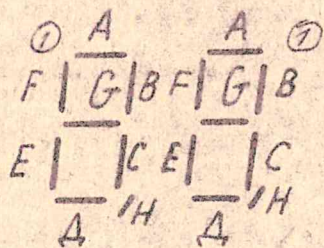 ① A A ①
F G B F G B
E C E C
Д 'H Д 'H